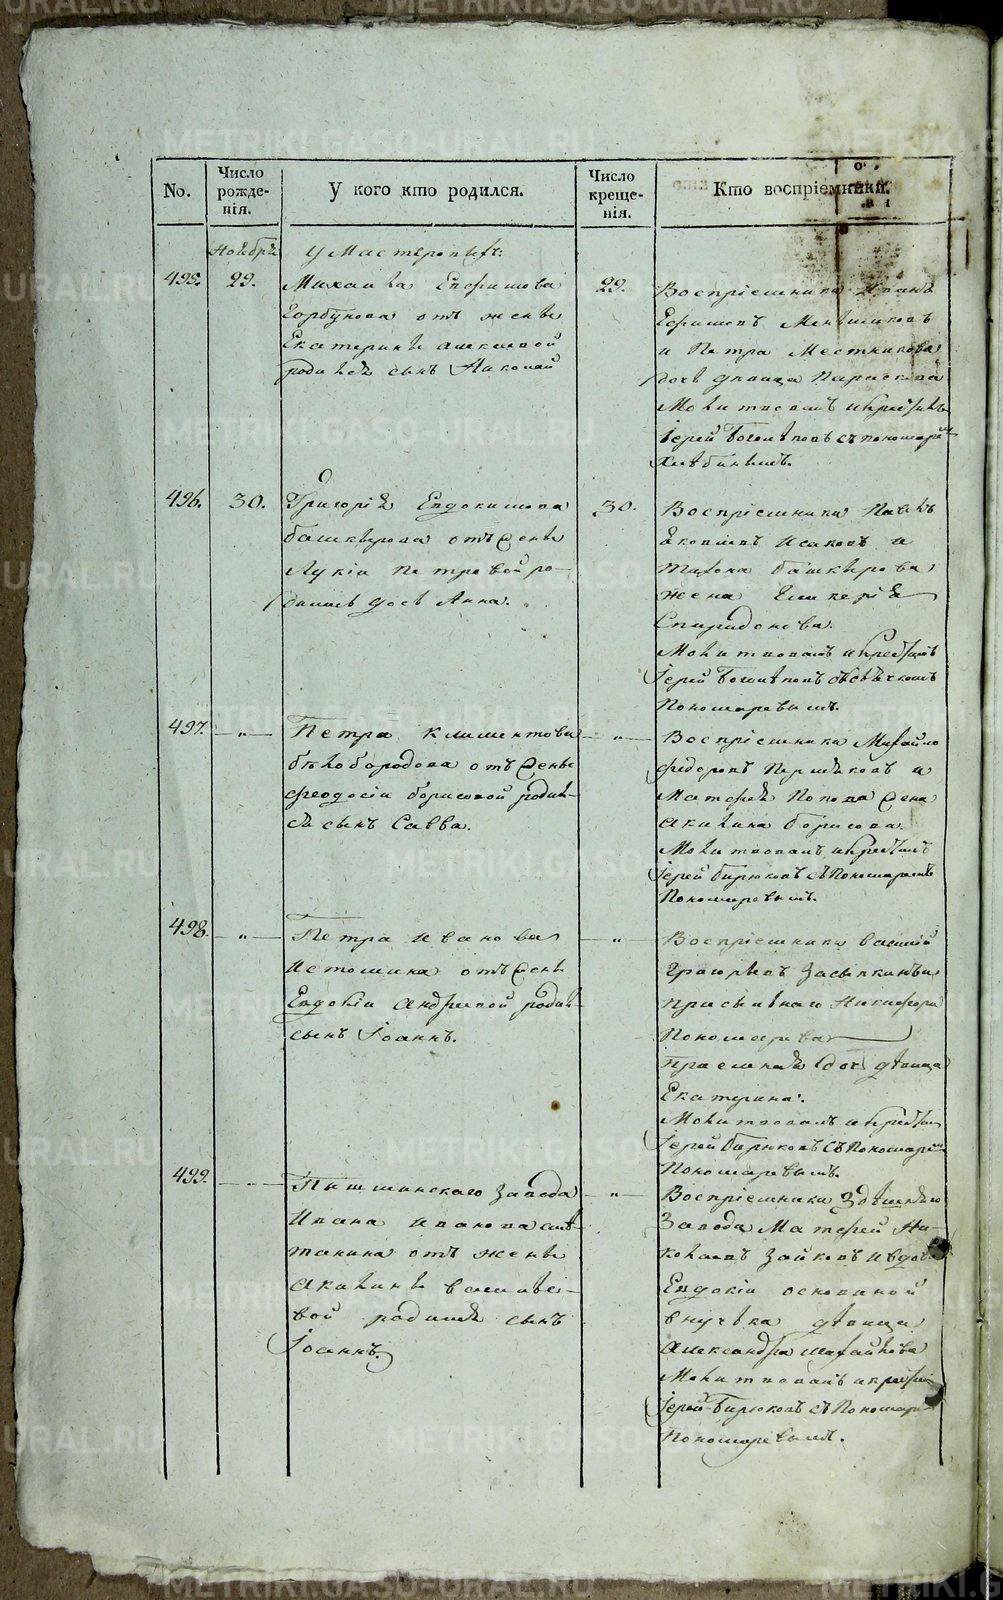 No.
Число рожде-
нія.
У кого кто родился.
Число креще-
нія.
Кто воспріемники.
Ноября
У Мастеровых:
495.
29.
Михаила Ефимова
Горбунова отъ жены
Екатерины
родился сынъ Николай
29.
Воспріемники Иванъ
Ефимовъ Меньшиковъ
и Петра Местникова
дочь девица Параскева
Молитвовалъ и крестилъ
Іерей Боголеповъ съ пономаремъ
Хлебинымъ.
496.
30.
Григорія Евдокимова
башкирова отъ жены
Лукіи Петровой ро-
дилась дочь Анна.
30.
Воспріемники Павелъ
Яковлевъ Исаковъ и
Тихона башкирова
жена Гликерія
Спиридонова.
Молитвовалъ и крестилъ
Іерей Боголеповъ
Пономаревымъ.
497.
"
Петра Климентова
белобородова отъ жены
Феодосіи борисовой родил-
ся сынъ Савва.
"
Воспріемники Михайло
Федоровъ Першаковъ и
Матфея Попова жена
Акилина борисова.
Молитвовалъ и крестилъ
Іерей Бирюковъ съ Пономаремъ
Пономаревымъ.
498.
"
Петра Иванова
Истомина отъ жены
Евдокіи Андреевой родил-
сынъ Іоаннъ.
"
Воспріемники Василій
Григорьевъ Засыпкинъ и
присыльнаго Никифора
Пономарева
дочь девица
Екатерина.
Молитвовалъ и крестилъ
Іерей Бирюковъ съ Пономаремъ
Пономаревымъ.
499.
Пышминскаго Завода
Ивана Иванова
отъ жены
Акилины Василье-
вой родился сынъ
Іоаннъ.
"
Воспріемники Здешняго
Завода Матфей Ни-
колаевъ Зайковъ и вдовы
Евдокіи Осиповой
внучка девица
Александра Михайлова
Молитвовалъ и крестилъ
Іерей Бирюковъ съ Пономаремъ
Пономаревымъ.
METRIKI.GASO-URAL.RU